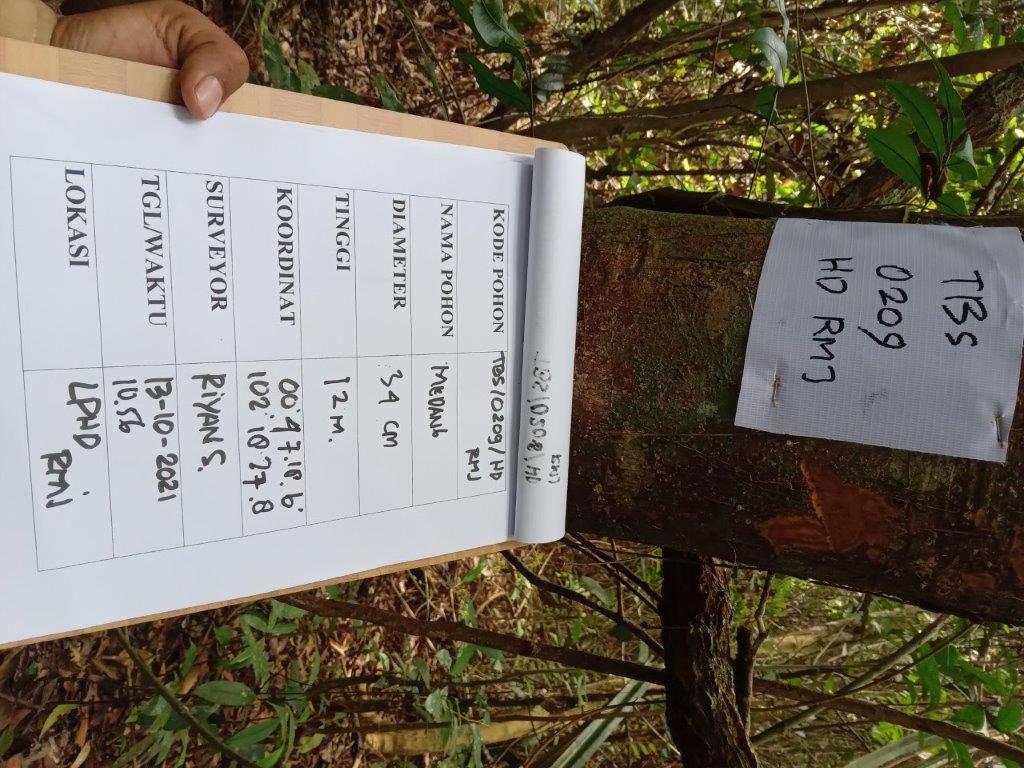 TBS
0209
HD RMJ
KODE POHON TBS/0209/HD
RMJ
NAMA POHON MEDANG
DIAMETER 34 CM
TINGGI 12 M.
KOORDINAT 00°47.18.6'
102°18.27.8
SURVEYOR RIYAN S.
TGL/WAKTU 13-10-2021
10.56
LOKASI LPHD
RMJ